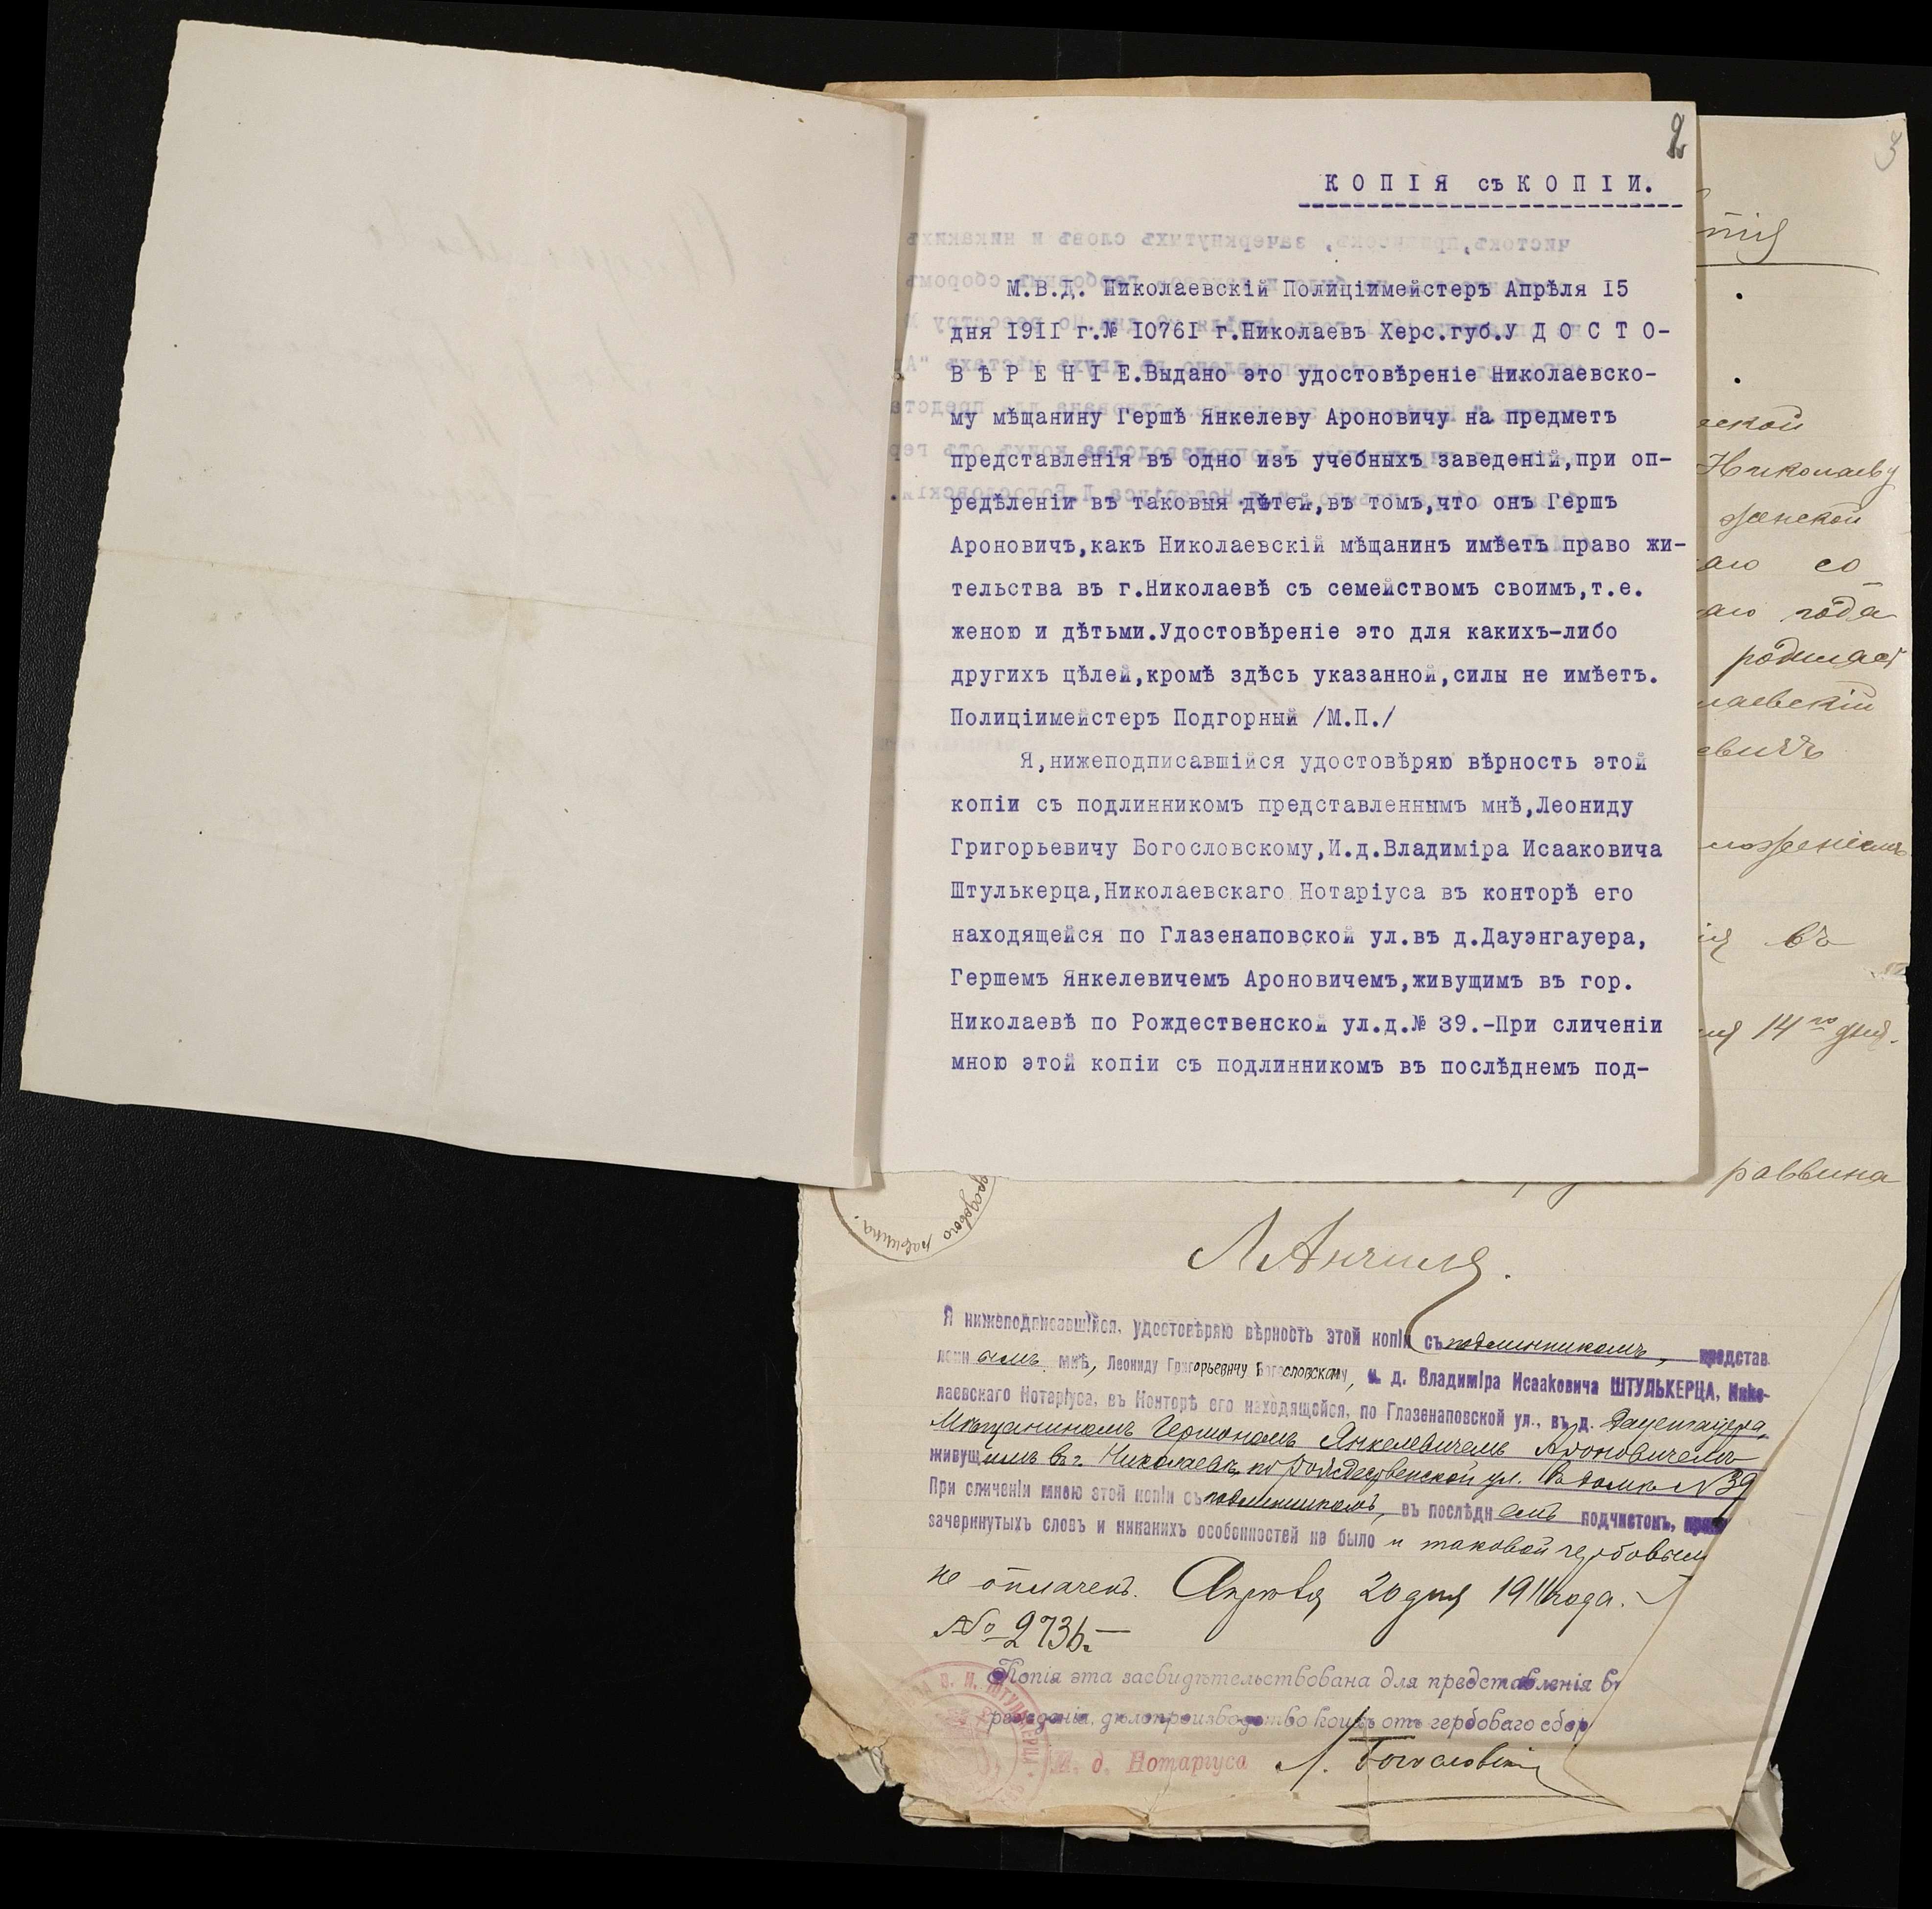 2
КОПІЯ съ КОПІИ.
М.В.Д. Николаевскій Полиціимейстеръ Апрѣля 15
дня 1911 г.№ 10761 г.Николаевъ Херс.губ.У Д О С Т О-
В Ѣ Р Е Н І Е.Выдано это удостовѣреніе Николаевско-
му мѣщанину Гершѣ Янкелеву Ароновичу на предметъ
представленія въ одно изъ учебныхъ заведеній,при оп-
редѣленіи въ таковыя дѣтей,въ томъ,что онъ Гершъ
Ароновичъ,какъ Николаевскій мѣщанинъ имѣетъ право жи-
тельства въ г.Николаевѣ съ семействомъ своимъ,т.е.
женою и дѣтьми.Удостовѣреніе это для какихъ-либо
другихъ цѣлей,кромѣ здѣсь указанной,силы не имѣетъ.
Полиціимейстеръ Подгорный /М.П./
Я,нижеподписавшійся удостовѣряю вѣрность этой
копіи съ подлинникомъ представленнымъ мнѣ,Леониду
Григорьевичу Богословскому,И.д.Владиміра Исааковича
Штулькерца,Николаевскаго Нотаріуса въ конторѣ его
находящейся по Глазенаповской ул.въ д.Дауэнгауера,
Гершемъ Янкелевичемъ Ароновичемъ,живущимъ въ гор.
Николаевѣ по Рождественской ул.д.№ 39.-При сличеніи
мною этой копіи съ подлинникомъ въ послѣднемъ под-
3
пія
еской
Николаеву
женской
аго со
аго года
родилась
лаевскій
евичъ
ложеніемъ
ія въ
ія 14го дня.
раввина
городового раввина.
Л Анчиля.
Я нижеподписавшійся, удостовѣряю вѣрность этой копіи съ подлинникомъ, представ
ленн ымъ мнѣ, Леониду Григорьевичу Богословскому, и. д. Владиміра Исааковича ШТУЛЬКЕРЦА, Нико-
лаевскаго Нотаріуса, въ Конторѣ его находящейся, по Глазенаповской ул., въ д. Дауенгауера,
Мѣщаниномъ Гершономъ Янкелевичемъ Ароновичемъ
живущимъ въ г. Николаевѣ, по Рождественской ул. въ домѣ N 39
При сличеніи мною этой копіи съ подлинникомъ, въ послѣдн емъ подчистокъ, при
зачеркнутыхъ словъ и никакихъ особенностей не было и таковой гербовым
не оплаченъ. Апрѣля 20 дня 1911 года.
№ 2736.
Копія эта засвидѣтельствована для представленія въ
реждения, дѣлопроизводство коихъ отъ гербоваго сбор
В. И. ШТУЛЬКЕРЦА
И. д. Нотаріуса Л. Богословскій